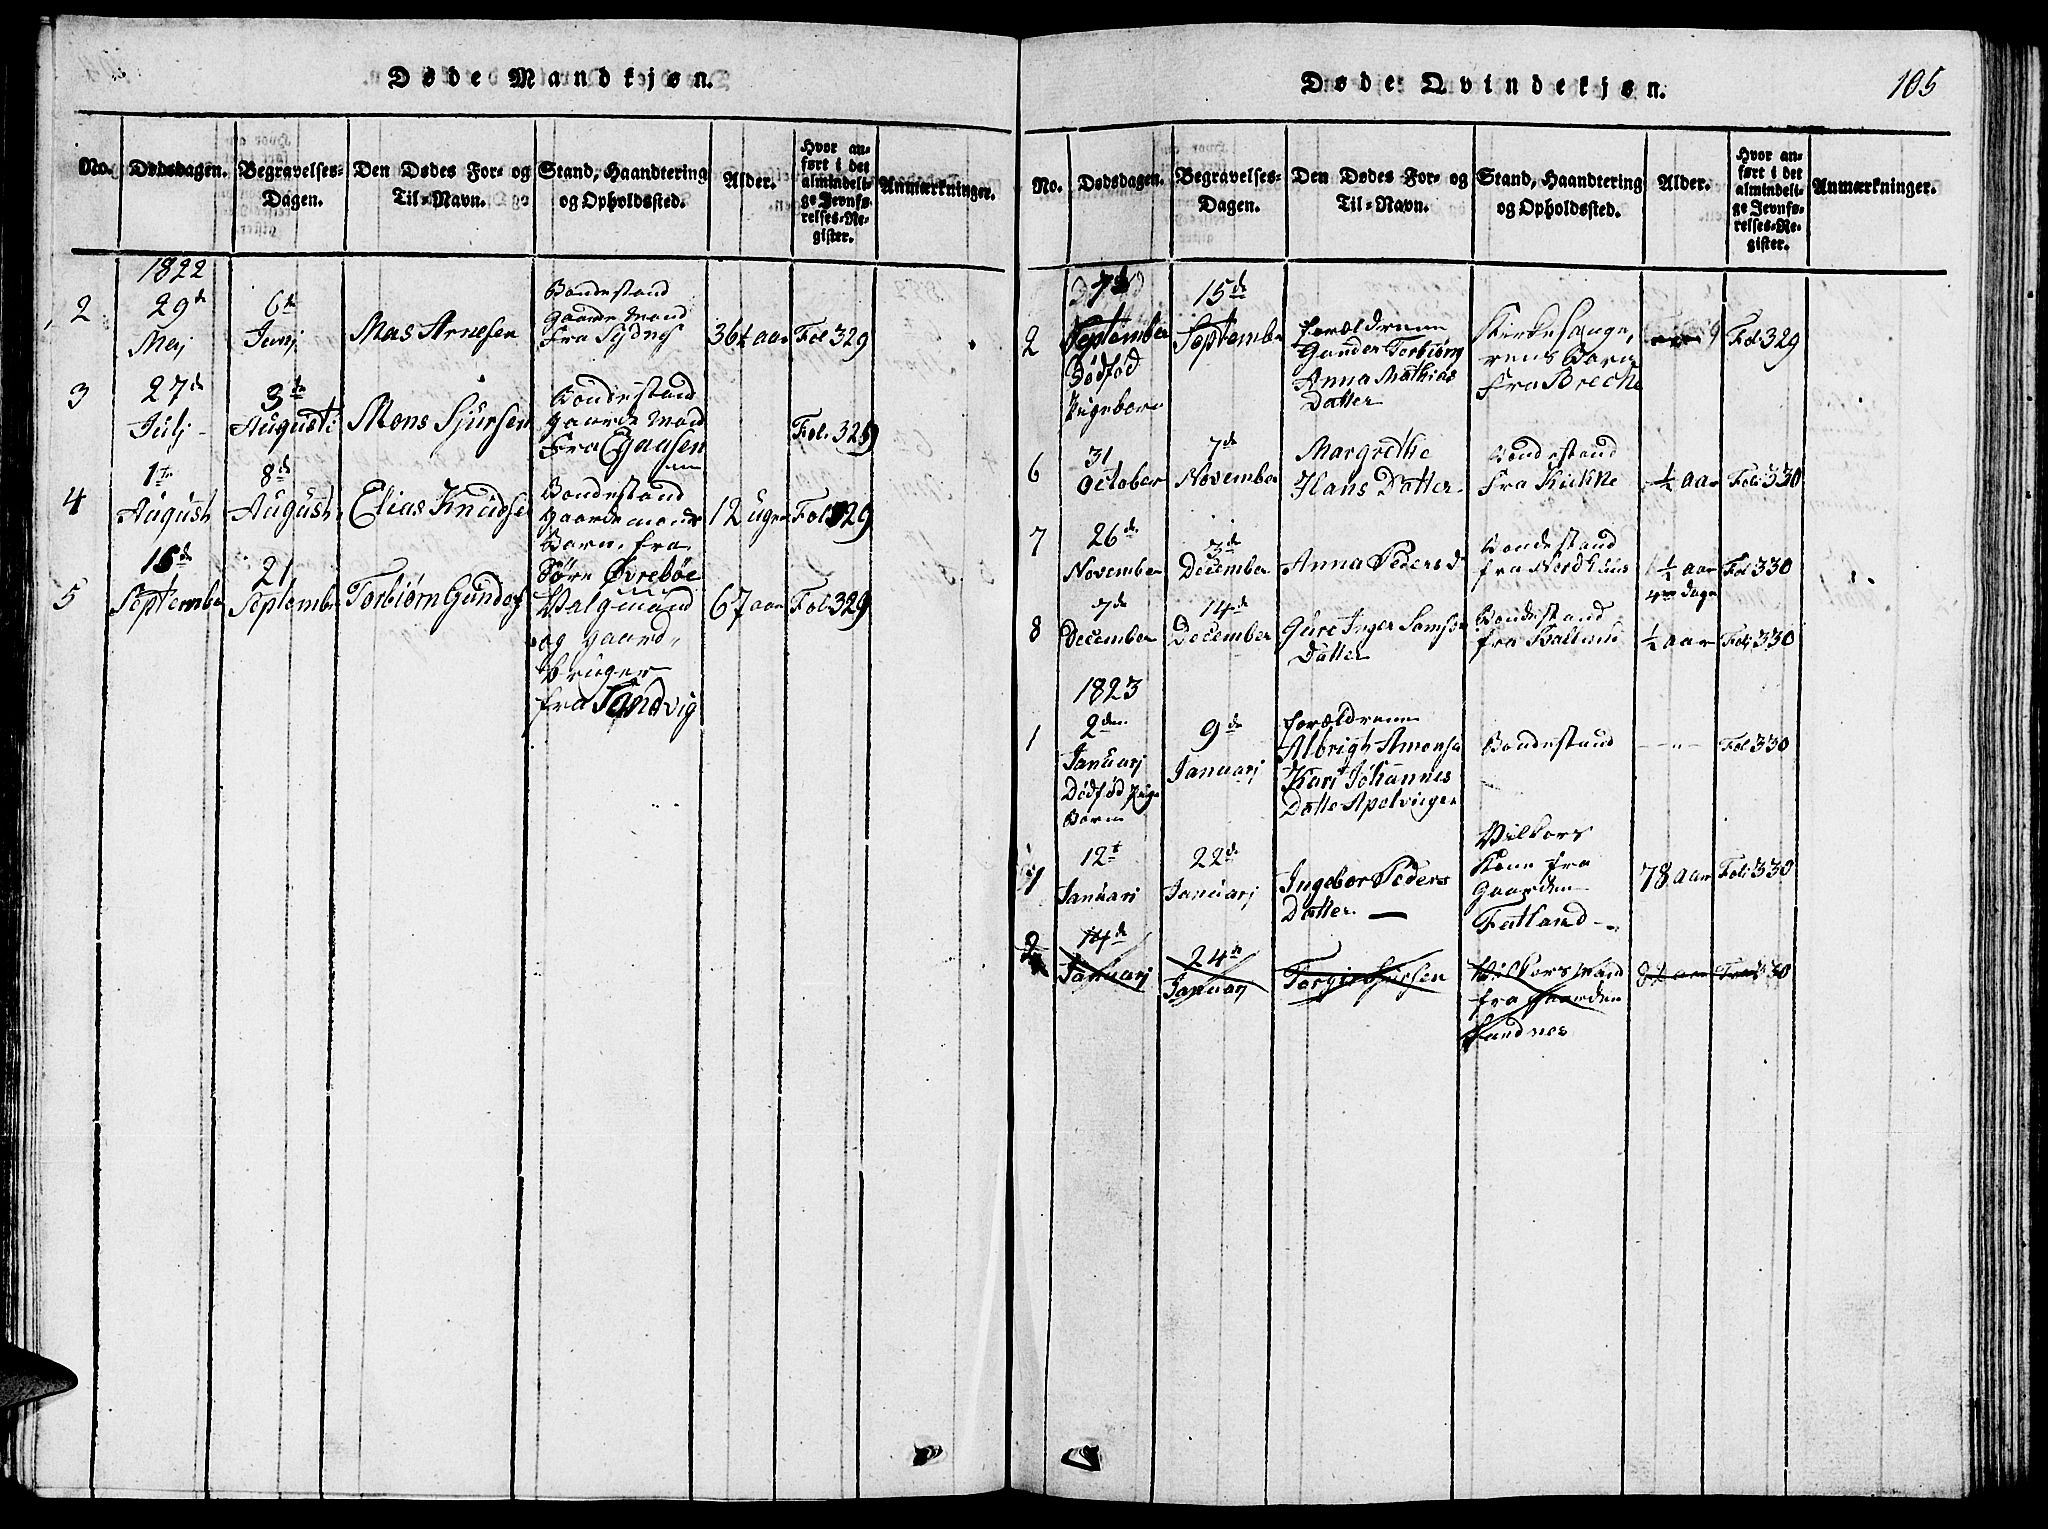 Døde Mandkjøn.
No.
Dødsdagen.
Begravelses-
Dagen.
Den Dødes For- og
Til-Navn.
Stand, Haandtering
og Opholdssted.
Alder.
Hvor an-
ført i det
almindeli-
ge Jevnfø-
relses-Re-
gister.
Anmærkninger.
1822
2
29de
Maj
6te
Junj
Mas Arnesen
Bondestand
Gaardemand
Fra Sydnes
36½ aar
Fol 329
3
27de
Julj
3die
Augusti
Mons Sjursen
Bondestand
Gaardemand
Fra
Fol. 329
4
1te
August
8de
August
Elias Knudsen
Bondestand
Gaardemands
Barn fra
Søre Øvrebøe
12 Uger
Fol 329
5
15de
September
21
September
Torbiørn Gunders
Valgmand
og gaard-
bruger
fra Sandvig
67 aar
Fol 329
Døde Qvindekjøn.
105
No.
Dødsdagen.
Begravelses-
Dagen.
Den Dødes For- og
Til-Navn.
Stand, Haandtering
og Opholdssted.
Alder.
Hvor an-
ført i det
almindeli-
ge Jevnfø-
relses-Re-
gister.
Anmærkninger.
2
7de
September
Dødfød
Pigebarn
15de
September
Forældrene
Gunder Torbiørn
Anna Mathias
Datter
Kirkesange,
rens Barn
Fra Breche
Fol 329
6
31
October
7de
November
Margrethe
Hans Datter
Bondestand
Fra Kirkhe
½ aar
Fol 330
7
26de
November
3de
December
Anna Peders d
Bondestand
fra Nordhuus
1½ aar
Fol 330
8
7de
December
14de
December
Gure Inger Samson
Datter
Bondestand
fra
4 dage
½ aar
Fol 330
1823
1
2den
Januarj
Dødfød Pige
Barn
9de
Januarj
Forældrene
Albrigt Amonsen
Kari Johannes
Datter Apelvinger
Bondestand
Fol 330
1
12t
Januarj
22de
Januarj
Ingebor Peders
Datter
Vilkors
Kone fra
Gaarden
Fatland
78 aar
Fol 330
2
14de
Januarj
24de
Januarj
Torgir Siursen
Vilkorsmand
fra Gaarden
Sandnes
82 aar
Fol 330